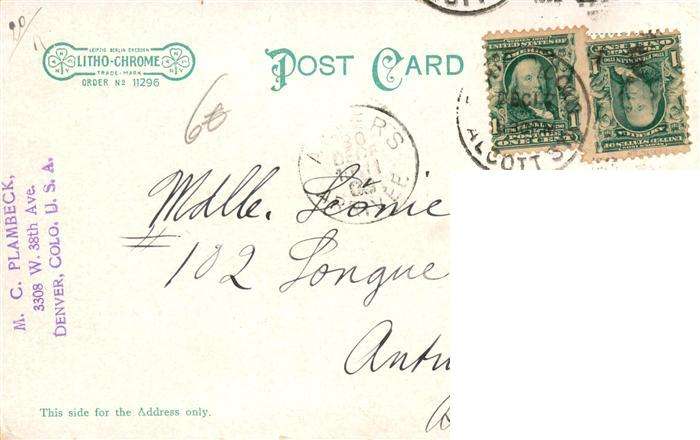 20
LEIPZIG BERLIN DRESDEN
LITHO-CHROME
TRADE-MARK
ORDER Nº 11296
POST CARD
60
ALCOTT S
UNITED STATES OF AMERICA
FRANKLIN
POSTAGE
ONE CENT
ANVERS
Mdlle. Leonie
102 Longue
Antw
M. C. PLAMBECK,
3308 W. 38th Ave.
DENVER, COLO. U. S. A.
This side for the Address only.